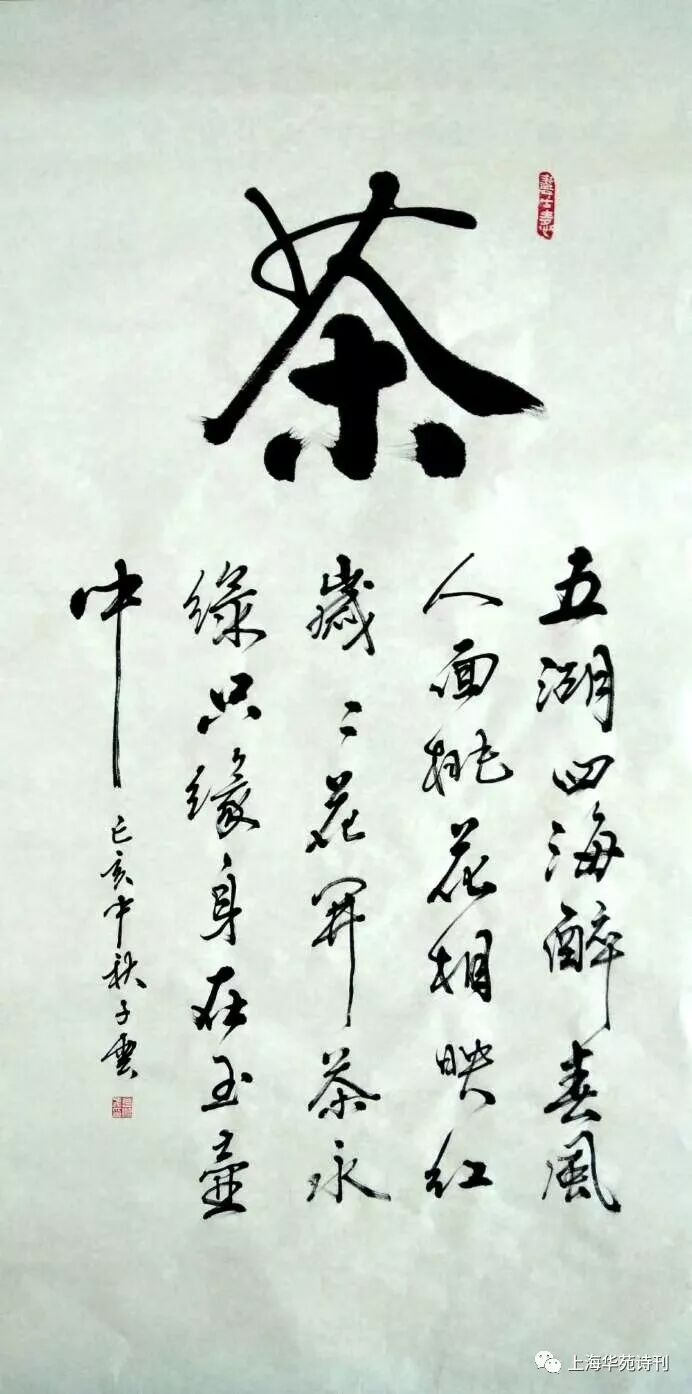 茶
五湖四海醉春風
人面桃花相映红
歲〻花開茶永
绿只缘身在玉壶
中
己亥中秋子雲
上海华苑诗刊